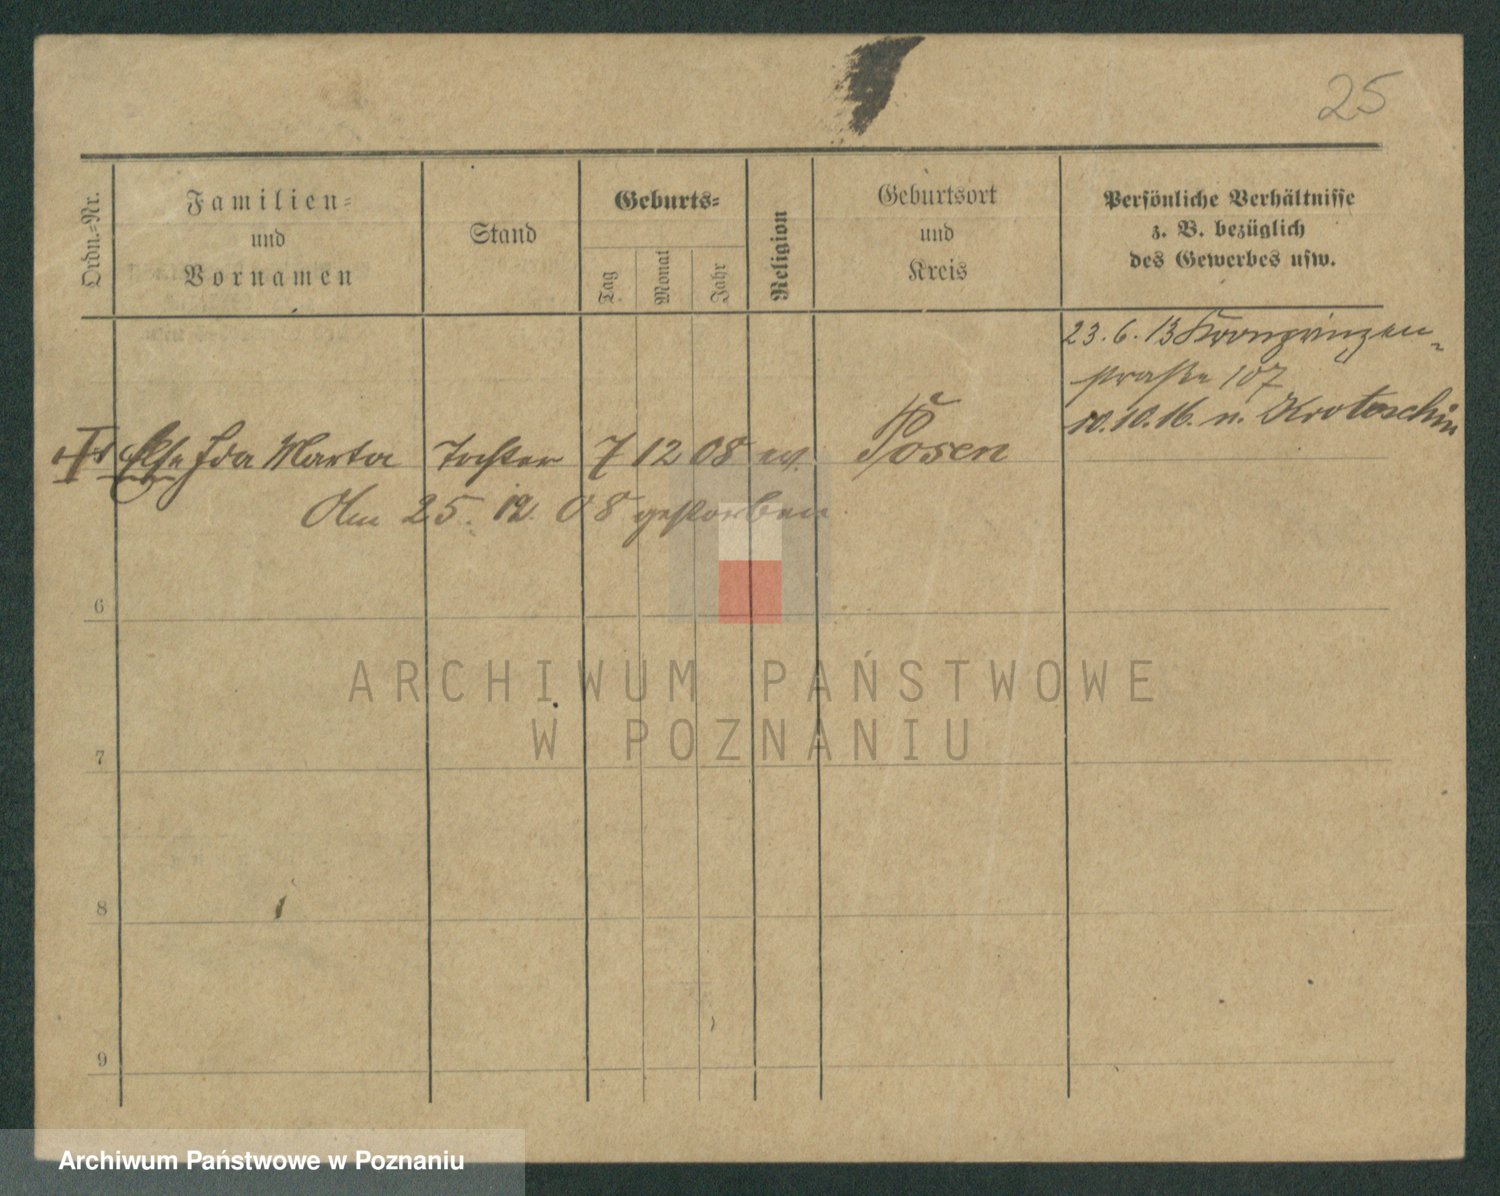 25
Ordn.=Nr.
Familien=
und
Vornamen
Stand
Geburts=
Tag
Monat
Jahr
Religion
Geburtsort
und
Kreis
Persönliche Verhältnisse
z. B. bezüglich
des Gewerbes usw.
23.6.13 Kronprinzen-
straße 107
10.10.16. n. Krotoschin
Else Ida Marta Tochter 7 12 08 ev. Posen
Am 25. 12. 08 gestorben
6
7
8
9
ARCHIWUM PAŃSTWOWE
W POZNANIU
Archiwum Państwowe w Poznaniu